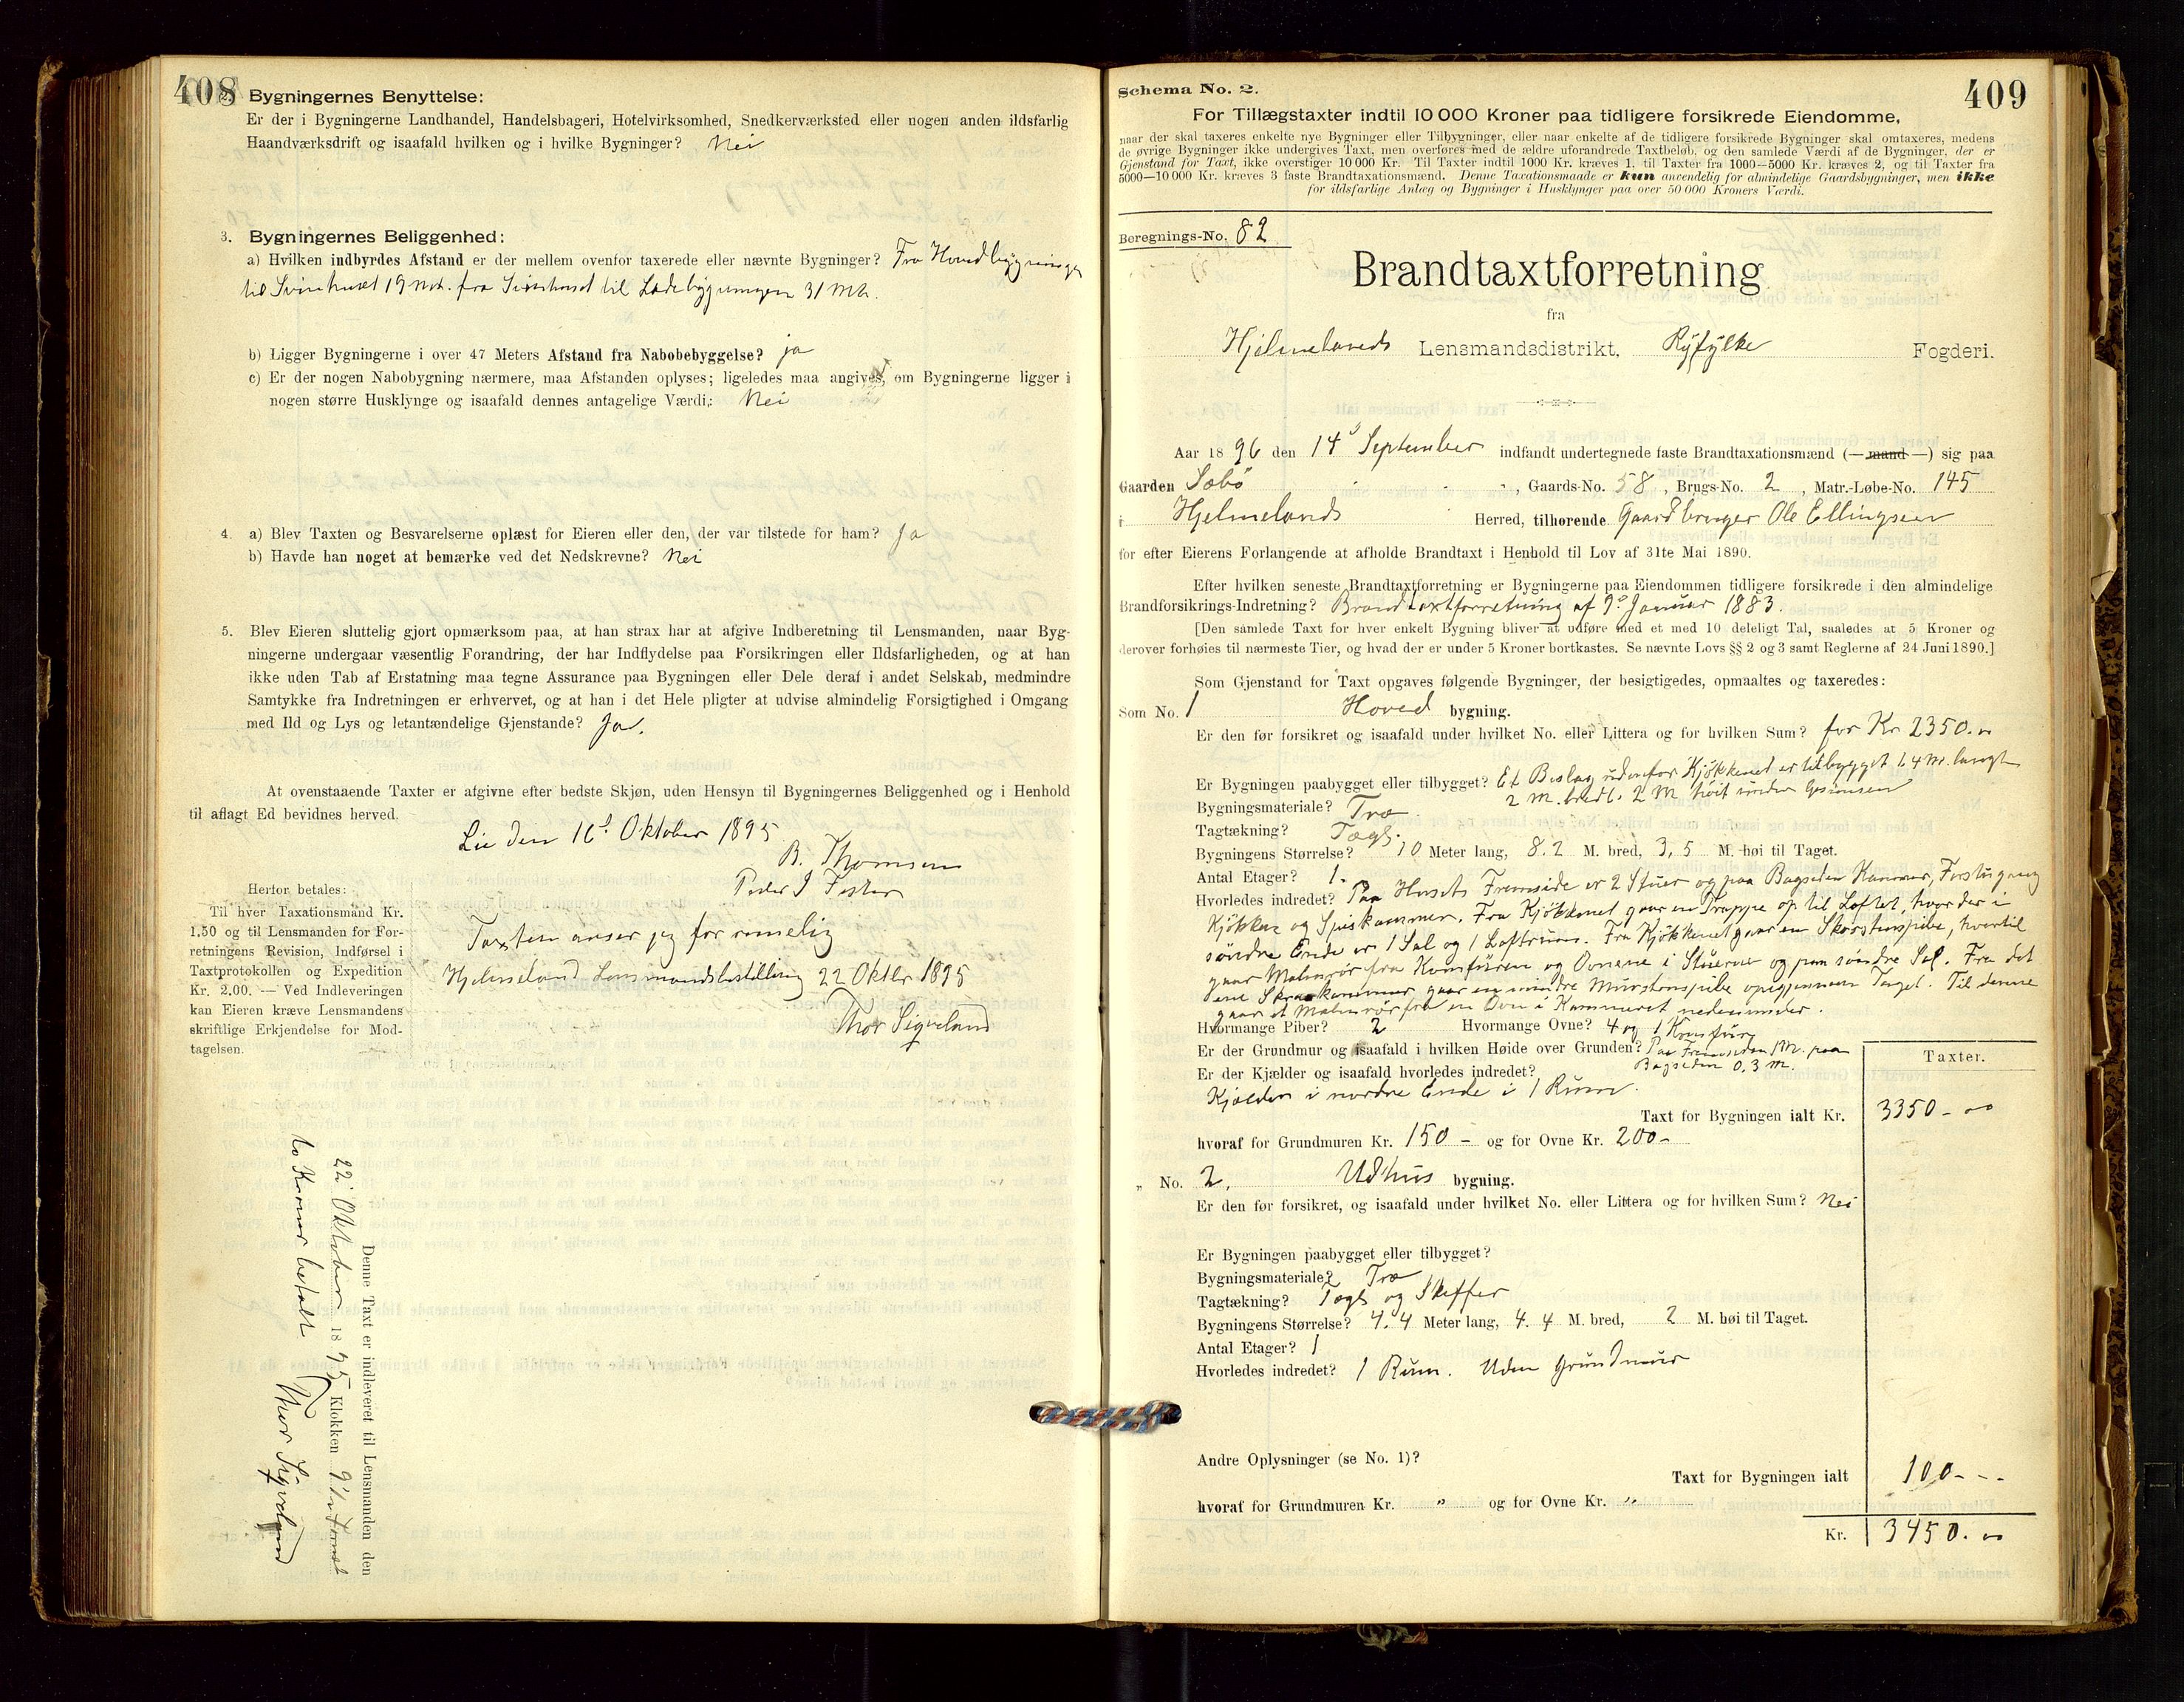 408
Bygningernes Benyttelse:
Er der i Bygningerne Landhandel, Handelsbageri, Hotelvirksomhed, Snedkerværksted eller nogen anden ildsfarlig
Haandværksdrift og isaafald hvilken og i hvilke Bygninger? Nei
3. Bygningernes Beliggenhed:
a) Hvilken indbyrdes Afstand er der mellem ovenfor taxerede eller nævnte Bygninger? Fra Hovedbygningen
til Svinehuset 19 mtr. fra Svinehuset til Ladebygningen 31 Mtr.
b) Ligger Bygningerne i over 47 Meters Afstand fra Nabobebyggelse? ja
c) Er der nogen Nabobygning nærmere, maa Afstanden oplyses; ligeledes maa angives, om Bygningerne ligger i
nogen større Husklynge og isaafald dennes antagelige Værdi: Nei
4. a) Blev Taxten og Besvarelserne oplæst for Eieren eller den, der var tilstede for ham? Ja
b) Havde han noget at bemærke ved det Nedskrevne? Nei
5. Blev Eieren sluttelig gjort opmærksom paa, at han strax har at afgive Indberetning til Lensmanden, naar Byg-
ningerne undergaar væsentlig Forandring, der har Indflydelse paa Forsikringen eller Ildsfarligheden, og at han
ikke uden Tab af Erstatning maa tegne Assurance paa Bygningen eller Dele deraf i andet Selskab, medmindre
Samtykke fra Indretningen er erhvervet, og at han i det Hele pligter at udvise almindelig Forsigtighed i Omgang
med Ild og Lys og letantændelige Gjenstande? Ja.
At ovenstaaende Taxter er afgivne efter bedste Skjøn, uden Hensyn til Bygningernes Beliggenhed og i Henhold
til aflagt Ed bevidnes herved.
Lie den 16d Oktober 1895
B. Thomsen
Peder J
Herfor betales:
Til hver Taxationsmand Kr.
1,50 og til Lensmanden for For-
retningens Revision, Indførsel i
Taxtprotokollen og Expedition
Kr. 2.00. — Ved Indleveringen
kan Eieren kræve Lensmandens
skriftlige Erkjendelse for Mod-
tagelsen.
Taxten anser jeg for rimelig
Hjelmeland Lensmandsbestilling 22 Oktbr 1895
Thor Sigveland
Denne Taxt er indleveret til Lensmanden den
22 Oktober 1895 Klokken 9 1/2 Formd
to Kroner betalt Thor Sigveland
409
Schema No. 2.
For Tillægstaxter indtil 10 000 Kroner paa tidligere forsikrede Eiendomme,
naar der skal taxeres enkelte nye Bygninger eller Tilbygninger, eller naar enkelte af de tidligere forsikrede Bygninger skal omtaxeres, medens
de øvrige Bygninger ikke undergives Taxt, men overføres med de ældre uforandrede Taxtbeløb, og den samlede Værdi af de Bygninger, der er
Gjenstand for Taxt, ikke overstiger 10 000 Kr. Til Taxter indtil 1000 Kr. kræves 1, til Taxter fra 1000—5000 Kr. kræves 2, og til Taxter fra
5000—10 000 Kr. kræves 3 faste Brandtaxationsmænd. Denne Taxationsmaade er kun anvendelig for almindelige Gaardsbygninger, men ikke
for ildsfarlige Anlæg og Bygninger i Husklynger paa over 50 000 Kroners Værdi.
Beregnings-No. 82
Brandtaxtforretning
fra
Hjelmelands Lensmandsdistrikt, Ryfylke Fogderi.
Aar 1896 den 14d September indfandt undertegnede faste Brandtaxationsmænd (— mand —) sig paa
Gaarden Sæbø, Gaards-No. 58, Brugs-No. 2, Matr.-Løbe-No. 145
i Hjelmelands Herred, tilhørende Gaardbruger Ole Ellingsen
for efter Eierens Forlangende at afholde Brandtaxt i Henhold til Lov af 31te Mai 1890.
Efter hvilken seneste Brandtaxtforretning er Bygningerne paa Eiendommen tidligere forsikrede i den almindelige
Brandforsikrings-Indretning? Brandtaxtforretning af 9d Januar 1883.
[Den samlede Taxt for hver enkelt Bygning bliver at udføre med et med 10 deleligt Tal, saaledes at 5 Kroner og
derover forhøies til nærmeste Tier, og hvad der er under 5 Kroner bortkastes. Se nævnte Lovs §§ 2 og 3 samt Reglerne af 24 Juni 1890.]
Som Gjenstand for Taxt opgaves følgende Bygninger, der besigtigedes, opmaaltes og taxeredes:
Som No. 1 Hoved bygning.
Er den før forsikret og isaafald under hvilket No. eller Littera og for hvilken Sum? for Kr 2350.00
Er Bygningen paabygget eller tilbygget? Et Beslag udenfor Kjøkkenet er tilbygget 1.4 M. langt
2 M. bredt. 2 M høit under Gesimsen
Bygningsmateriale? Træ
Tagtækning? Tagl.
Bygningens Størrelse? 10 Meter lang, 8.2 M. bred, 3,5 M. høi til Taget.
Antal Etager? 1.
Hvorledes indredet? Paa Husets Fremside er 2 Stuer og paa Bagsiden Kammer, Forstugang
Kjøkken og Spiskammer. Fra Kjøkkenet gaar en Trappe op til Loftet, hvor der i
søndre Ende er 1 Sal og 1 Loftrum. Fra Kjøkkenet gaar en Skorstenspibe, hvortil
gaar Malmrør fra Komfuren og Ovnene i Stuerne og paa søndre Sal. Fra det
ene Skraakammer gaar en mindre Murstenspibe opigjennem Taget. Til denne
gaar et Malmrør fra en Ovn i Kammeret nedenunder.
Hvormange Piber? 2 Hvormange Ovne? 4 og 1 Komfur
Er der Grundmur og isaafald i hvilken Høide over Grunden? Paa Fremsiden 1 M. paa
Bagsiden 0.3 M.
Er der Kjælder og isaafald hvorledes indredet?
Kjælder i nordre Ende i 1 Rum.
Taxter.
Taxt for Bygningen ialt Kr. 3350 - 00
hvoraf for Grundmuren Kr. 150 - og for Ovne Kr. 200 -
„ No. 2, Udhus bygning.
Er den før forsikret, og isaafald under hvilket No. eller Littera og for hvilken Sum? Nei
Er Bygningen paabygget eller tilbygget?
Bygningsmateriale? Træ
Tagtækning? Tagl og Skiffer
Bygningens Størrelse? 4.4 Meter lang, 4.4 M. bred, 2 M. høi til Taget.
Antal Etager? 1
Hvorledes indredet? 1 Rum. Uden Grundmur
Andre Oplysninger (se No. 1)?
Taxt for Bygningen ialt 100 - - -
hvoraf for Grundmuren Kr. „ og for Ovne Kr. „
Kr. 3450.00